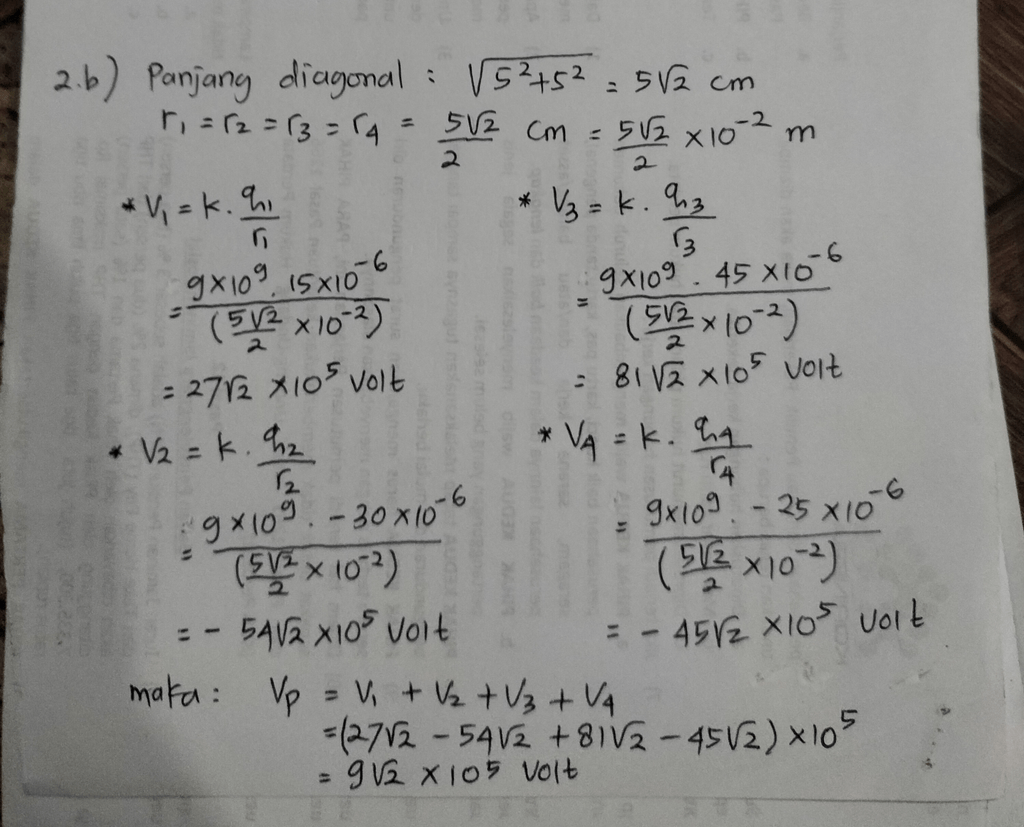 2.b) Panjang diagonal : √5²+5² = 5√2 cm
r₁ = r₂ = r₃ = r₄ = 5√2/2 cm = 5√2/2 × 10⁻² m
* V₁ = k. q₁/r₁
= 9×10⁹. 15×10⁻⁶ / (5√2/2 × 10⁻²)
= 27√2 ×10⁵ Volt
* V₂ = k. q₂/r₂
= 9×10⁹. -30×10⁻⁶ / (5√2/2 × 10⁻²)
= - 54√2 ×10⁵ Volt
* V₃ = k. q₃/r₃
= 9×10⁹. 45 ×10⁻⁶ / (5√2/2 × 10⁻²)
= 81√2 ×10⁵ Volt
* V₄ = k. q₄/r₄
= 9×10⁹. - 25 ×10⁻⁶ / (5√2/2 × 10⁻²)
= - 45√2 ×10⁵ Volt
maka : Vp = V₁ + V₂ + V₃ + V₄
=(27√2 - 54√2 + 81√2 - 45√2) ×10⁵
= 9√2 × 10⁵ Volt